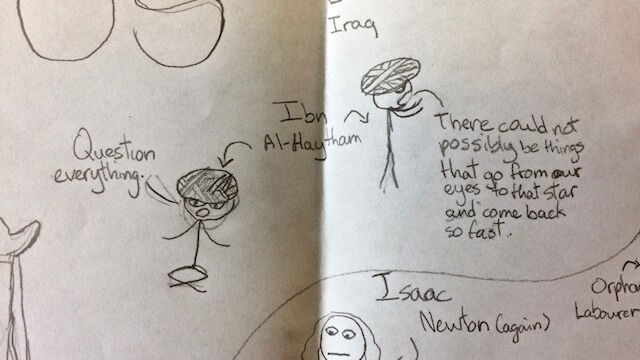 Iraq
Ibn
Al-Haytham
Question
everything.
There could not
possibly be things
that go from our
eyes to that star
and come back
so fast..
Isaac
Newton (again)
Orpha
Labourer